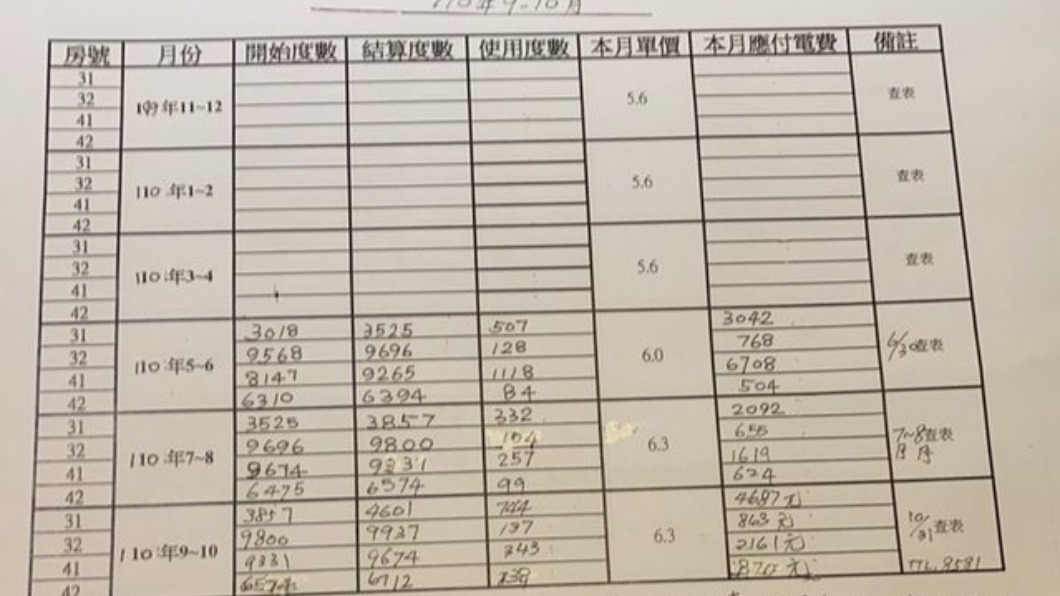 110年9-10月
房號 月份 開始度數 結算度數 使用度數 本月單價 本月應付電費 備註
31
32 年11~12 5.6 查表
41
42
31
32 110年1~2 5.6 查表
41
42
31
32 110年3~4 5.6 查表
41
42
31 3018 3525 507 3042
32 110年5~6 9568 9696 128 6.0 768 6/30查表
41 8147 9265 1118 6708
42 6310 6394 84 504
31 3525 3857 332 2092
32 110年7~8 9696 9800 104 6.3 655 7~8查表
41 9674 9331 257 1619 月
42 6475 6574 99 624
31 3857 4601 744 4687元
32 110年9~10 9800 9937 137 6.3 863元 10/31查表
41 9331 9674 343 2161元
42 6574 6712 138 870元 TTL.8581